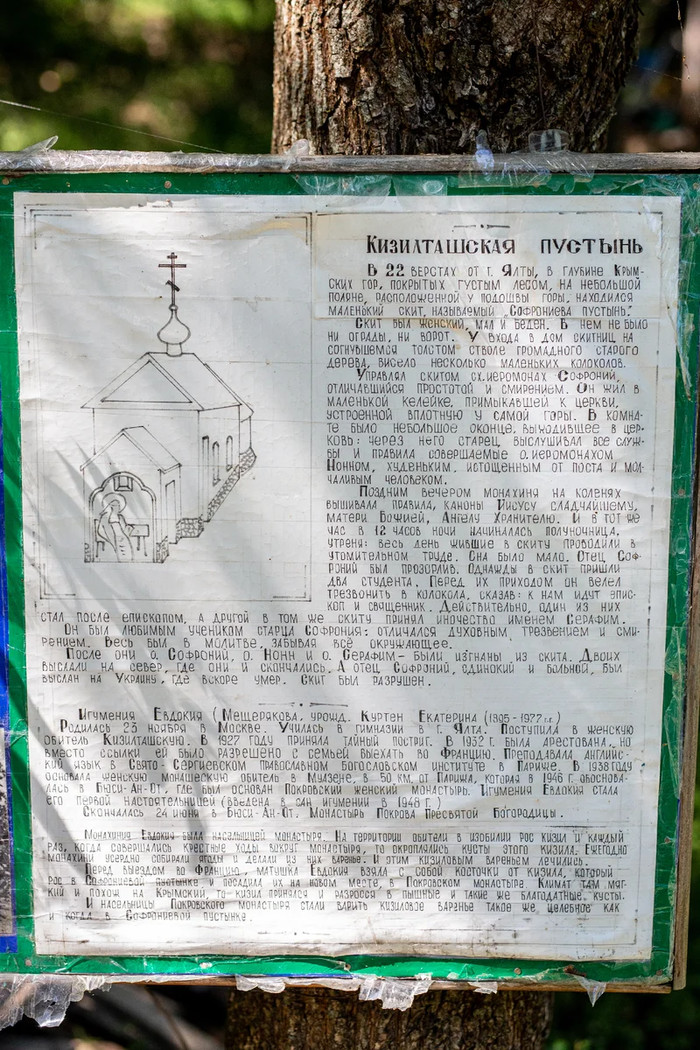 Кизилташская пустынь
В 22 верстах от г. Ялты, в глубине Крым-
ских гор, покрытых густым лесом, на небольшой
поляне, расположенной у подошвы горы, находился
маленький скит, называемый „Софрониева пустынь."
Скит был женский, мал и беден. В нем не было
ни ограды, ни ворот. У входа в дом скитниц на
согнувшемся толстом стволе громадного старого
дерева, висело несколько маленьких колоколов.
Управлял скитом сх.иеромонах Софроний,
отличавшийся простотой и смирением. Он жил в
маленькой келейке, примыкавшей к церкви,
устроенной вплотную у самой горы. В комна-
те было небольшое оконце, выходившее в цер-
ковь: через него старец, выслушивал все служ-
бы и правила совершаемые о.иеромонахом
Нонном, худеньким, истощенным от поста и мол-
чаливым человеком.
Поздним вечером монахиня на коленях
вышивала правила, каноны Иисусу сладчайшему,
матери Божией, Ангелу Хранителю. И в тот же
час в 12 часов ночи начиналась полуночница,
утреня: весь день жившие в скиту проводили в
утомительном труде. Сна было мало. Отец Соф-
роний был прозорлив. Однажды в скит пришли
два студента. Перед их приходом он велел
трезвонить в колокола, сказав: к нам идут епис-
коп и священник. Действительно, один из них
стал после епископом, а другой в том же скиту принял иночество именем Серафим.
Он был любимым учеником старца Софрония: отличался духовным трезвением и сми-
рением. Весь был в молитве, забывая всё окружающее.
После они о. Софроний, о. Нонн и о. Серафим – были изгнаны из скита. Двоих
выслали на север, где они и скончались. А отец Софроний, одинокий и больной, был
выслан на Украину, где вскоре умер. Скит был разрушен.
Игумения Евдокия (Мещерякова, урожд. Куртен Екатерина (1895 - 1977 г.г.)
Родилась 23 ноября в Москве. Училась в гимназии в г. Ялта. Поступила в женскую
обитель Кизилташскую. В 1927 году приняла тайный постриг. В 1932 г. была арестована, но
вместо ссылки ей было разрешено с семьей выехать во Францию. Преподавала английс-
кий язык в Свято-Сергиевском православном богословском институте в Париже. В 1938 году
основала женскую монашескую обитель в Музене, в 50 км. от Парижа, которая в 1946 г. обоснова-
лась в Бюси-Ан-От, где был основан Покровский женский монастырь. Игумения Евдокия стала
его первой настоятельницей (введена в сан игумении в 1948 г.)
Скончалась 24 июня в Бюси-Ан-От. Монастырь Покрова Пресвятой Богородицы.
Монахиня Евдокия была насельницей монастыря. На территории обители в изобилии рос кизил и каждый
раз, когда совершались крестные ходы вокруг монастыря, то окроплялись кусты этого кизила. Ежегодно
монахини усердно собирали ягоды и делали из них варенье. И этим кизиловым вареньем лечились.
Перед выездом во Францию, матушка Евдокия взяла с собой косточки от кизила, который
рос в Софрониевой пустынке и посадила их на новом месте, в Покровском монастыре. Климат там мяг-
кий и похож на Крымский, то-кизил принялся и разросся в пышные и такие же благодатные кусты.
И насельницы Покровского монастыря стали варить кизиловое варенье такое же целебное как
и когда в Софрониевой пустынке.